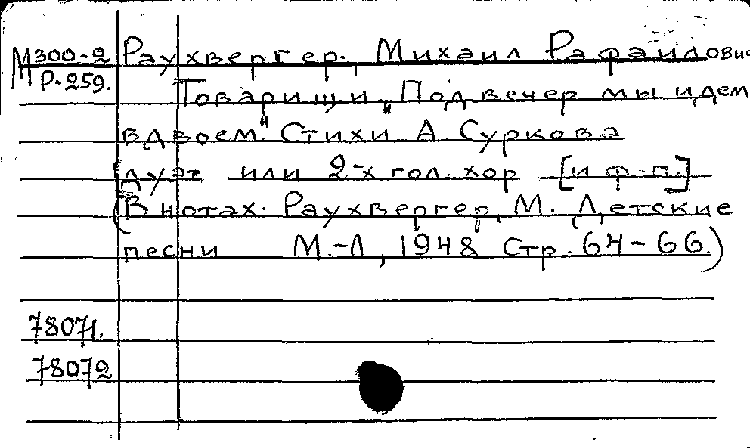 М300-2 Раухвергер, Михаил Рафаилович
Р-259.
Товарищи „Под вечер мы идем
вдвоем." Стихи А Суркова
(дуэт или 2-х гол. хор [и ф-п.]
(В нотах: Раухвергер, М. Детские
песни М.-Л, 1948 Стр. 64-66.)
78071.
78072